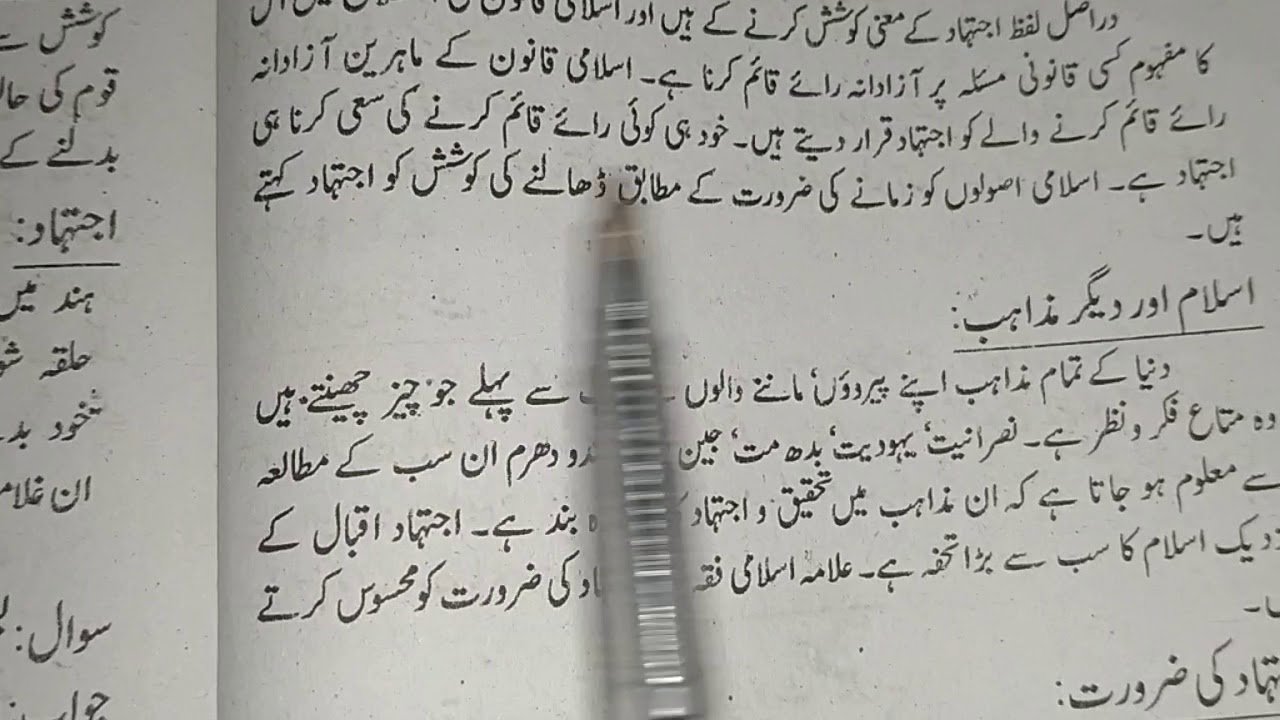 دراصل لفظ اجتہاد کے معنی کوشش کرنے کے ہیں اور اسلامی قانون کی
کا مفہوم کسی قانونی مسئلہ پر آزادانہ رائے قائم کرنا ہے۔ اسلامی قانون کے ماہرین آزادانہ
رائے قائم کرنے والے کو اجتہاد قرار دیتے ہیں۔ خود ہی کوئی رائے قائم کرنے کی سعی کرنا ہی
اجتہاد ہے۔ اسلامی اصولوں کو زمانے کی ضرورت کے مطابق ڈھالنے کی کوشش کو اجتہاد کہتے
ہیں۔
اسلام اور دیگر مذاہب:
دنیا کے تمام مذاہب اپنے پیروؤں' ماننے والوں سے پہلے جو چیز چھینتے ہیں
وہ متاع فکر و نظر ہے۔ نصرانیت' یہودیت' بدھ مت' جین دھرم ان سب کے مطالعہ
سے معلوم ہو جاتا ہے کہ ان مذاہب میں تحقیق و اجتہاد بند ہے۔ اجتہاد اقبال کے
نزدیک اسلام کا سب سے بڑا تحفہ ہے۔ علامہ اسلامی فقہ کی ضرورت کو محسوس کرتے
کی ضرورت:
کوشش
قوم کی
بدلنے کے
اجتہاد:
ہند میں
حلقہ
خود
ان
سوال:
جواب: